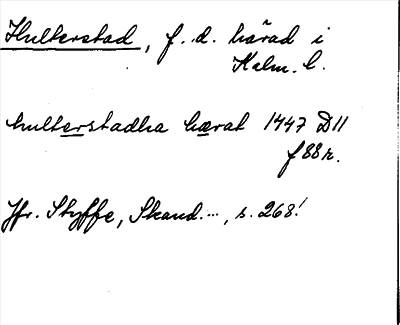 Hulterstad, f. d. härad i
Kalm. l.
hulterstadha hærat 1447 D11
f 88 r.
Jfr. Styffe, Skand..., s. 268!